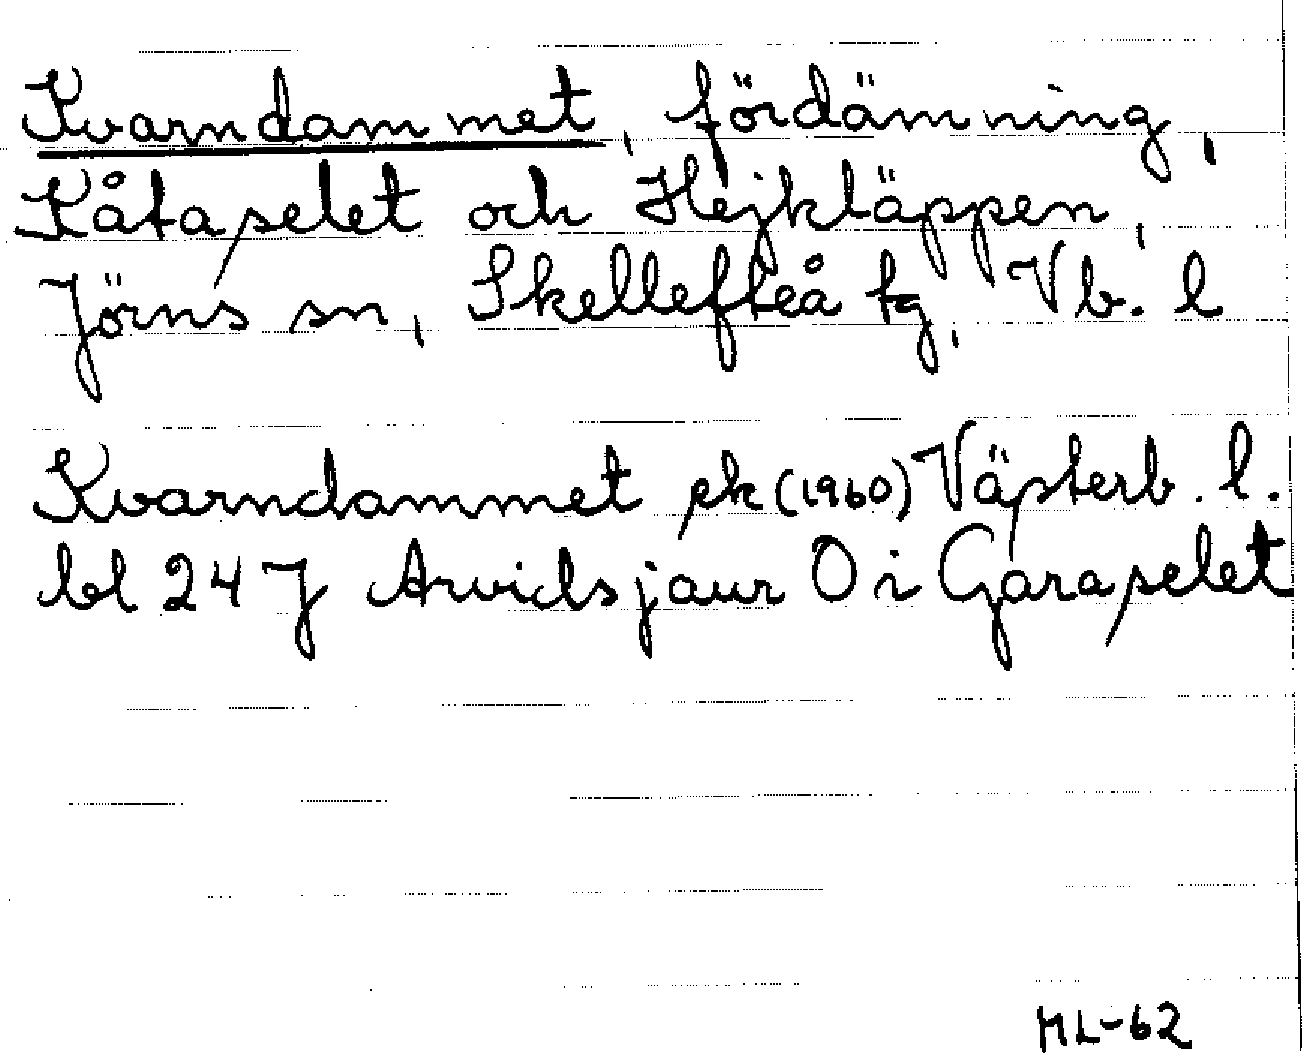 Kvarndammet, fördämning,
Kåtaselet och Hejkläppen,
Jörns sn, Skellefteå tg, Vb. l
Kvarndammet ek (1960) Västerb. l.
bl 24 J Arvidsjaur O i Garaselet
ML-62